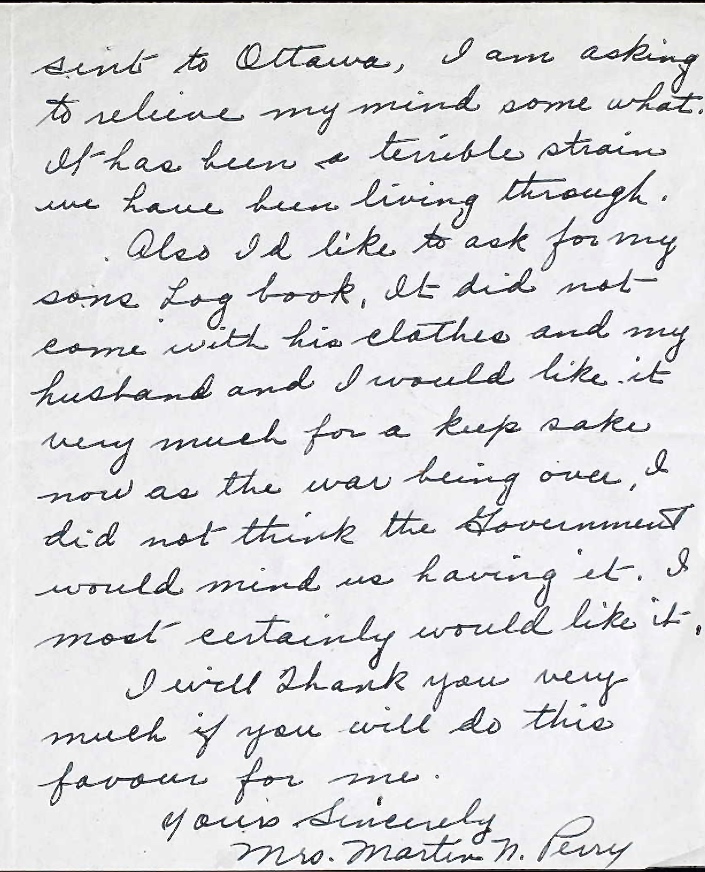 sent to Ottawa, I am asking
to relieve my mind some what.
It has been a terrible strain
we have been living through.
Also I'd like to ask for my
sons Log book, It did not
come with his clothes and my
husband and I would like it
very much for a keep sake
now as the war being over, I
did not think the Government
would mind us having it. I
most certainly would like it.
I will Thank you very
much if you will do this
favour for me.
Yours Sincerely
Mrs. Martin N. Perry